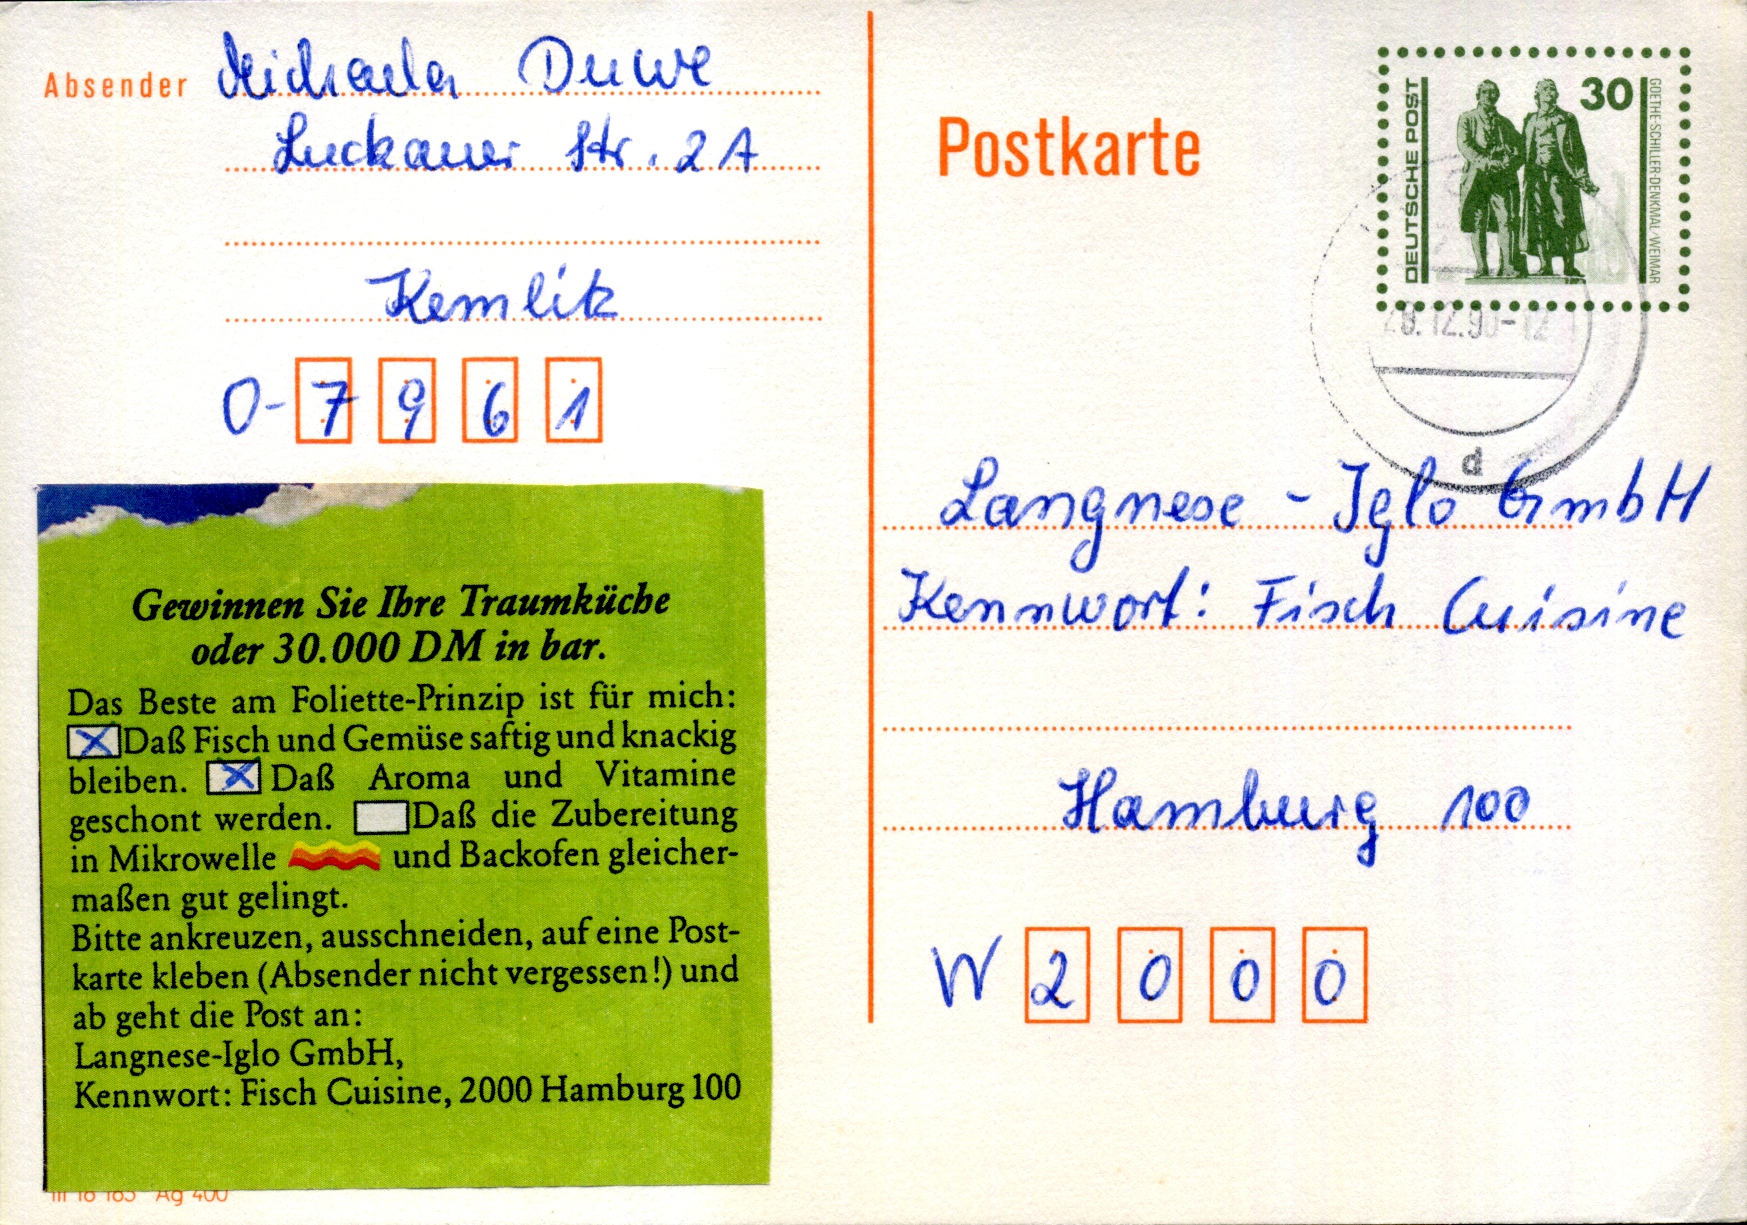 Absender Michaela Duwe
Luckauer Str. 2A
Kemlitz
O-7961
Postkarte
DEUTSCHE POST
30
GOETHE-SCHILLER-DENKMAL/WEIMAR
12.90-12
d
Langnese - Iglo GmbH
Kennwort: Fisch Cuisine
Hamburg 100
W 2000
Gewinnen Sie Ihre Traumküche
oder 30.000 DM in bar.
Das Beste am Foliette-Prinzip ist für mich:
Daß Fisch und Gemüse saftig und knackig
bleiben. Daß Aroma und Vitamine
geschont werden. Daß die Zubereitung
in Mikrowelle und Backofen gleicher-
maßen gut gelingt.
Bitte ankreuzen, ausschneiden, auf eine Post-
karte kleben (Absender nicht vergessen!) und
ab geht die Post an:
Langnese-Iglo GmbH,
Kennwort: Fisch Cuisine, 2000 Hamburg 100
III 18 185 Ag 400